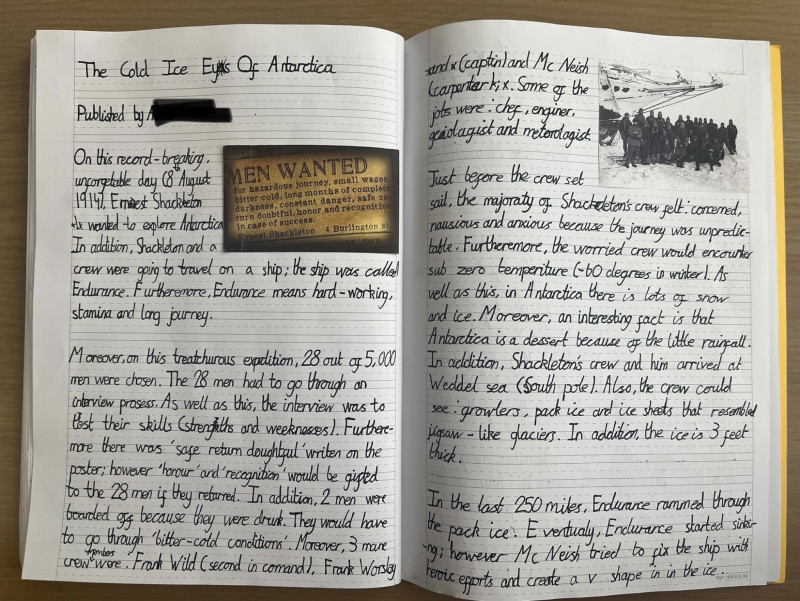 The Cold Ice Eyes Of Antarctica
Published by
On this record-breaking,
unforgetable day (8th August
1914), Ernest Shackleton
wanted to explore Antarctica.
In addition, Shackleton and a
crew were going to travel on a ship; the ship was called
Endurance. Furthermore, Endurance means hard-working,
stamina and long journey.
MEN WANTED
for hazardous journey, small wages,
bitter cold, long months of complete
darkness, constant danger, safe re-
turn doubtful, honor and recognition
in case of success.
Ernest Shackleton 4 Burlington st.
Moreover, on this treatchurous expedition, 28 out of 5,000
men were chosen. The 28 men had to go through an
interview prosess. As well as this, the interview was to
test their skills (strengths and weeknesses). Further-
more there was 'safe return doughtful' writen on the
poster; however 'honour' and 'recognition' would be gifted
to the 28 men if they returned. In addition, 2 men were
boarded off because they were drunk. They would have
to go through 'bitter-cold conditions'. Moreover, 3 more
crew members were: Frank Wild (second in comand), Frank Worsley
and x (captin) and Mc Neish
(carpenter), x. Some of the
jobs were: chef, enginer,
geiologist and meterologist.
Just before the crew set
sail, the majoraty of Shackleton's crew felt: concerned,
nausious and anxious because the journey was unpredic-
table. Furthermore, the worried crew would encounter
sub zero temperiture (-60 degrees in winter). As
well as this, in Antarctica there is lots of snow
and ice. Moreover, an interesting fact is that
Antarctica is a dessert because of the little rainfall.
In addition, Shackleton's crew and him arrived at
Weddel sea (South pole). Also, the crew could
see: growlers, pack ice and ice sheets that resembled
jigsaw-like glaciers. In addition, the ice is 3 feet
thick.
In the last 250 miles, Endurance rammed through
the pack ice. Eventualy, Endurance started sinki-
ng; however Mc Neish tried to fix the ship with
heroic efforts and create a v shape in in the ice.